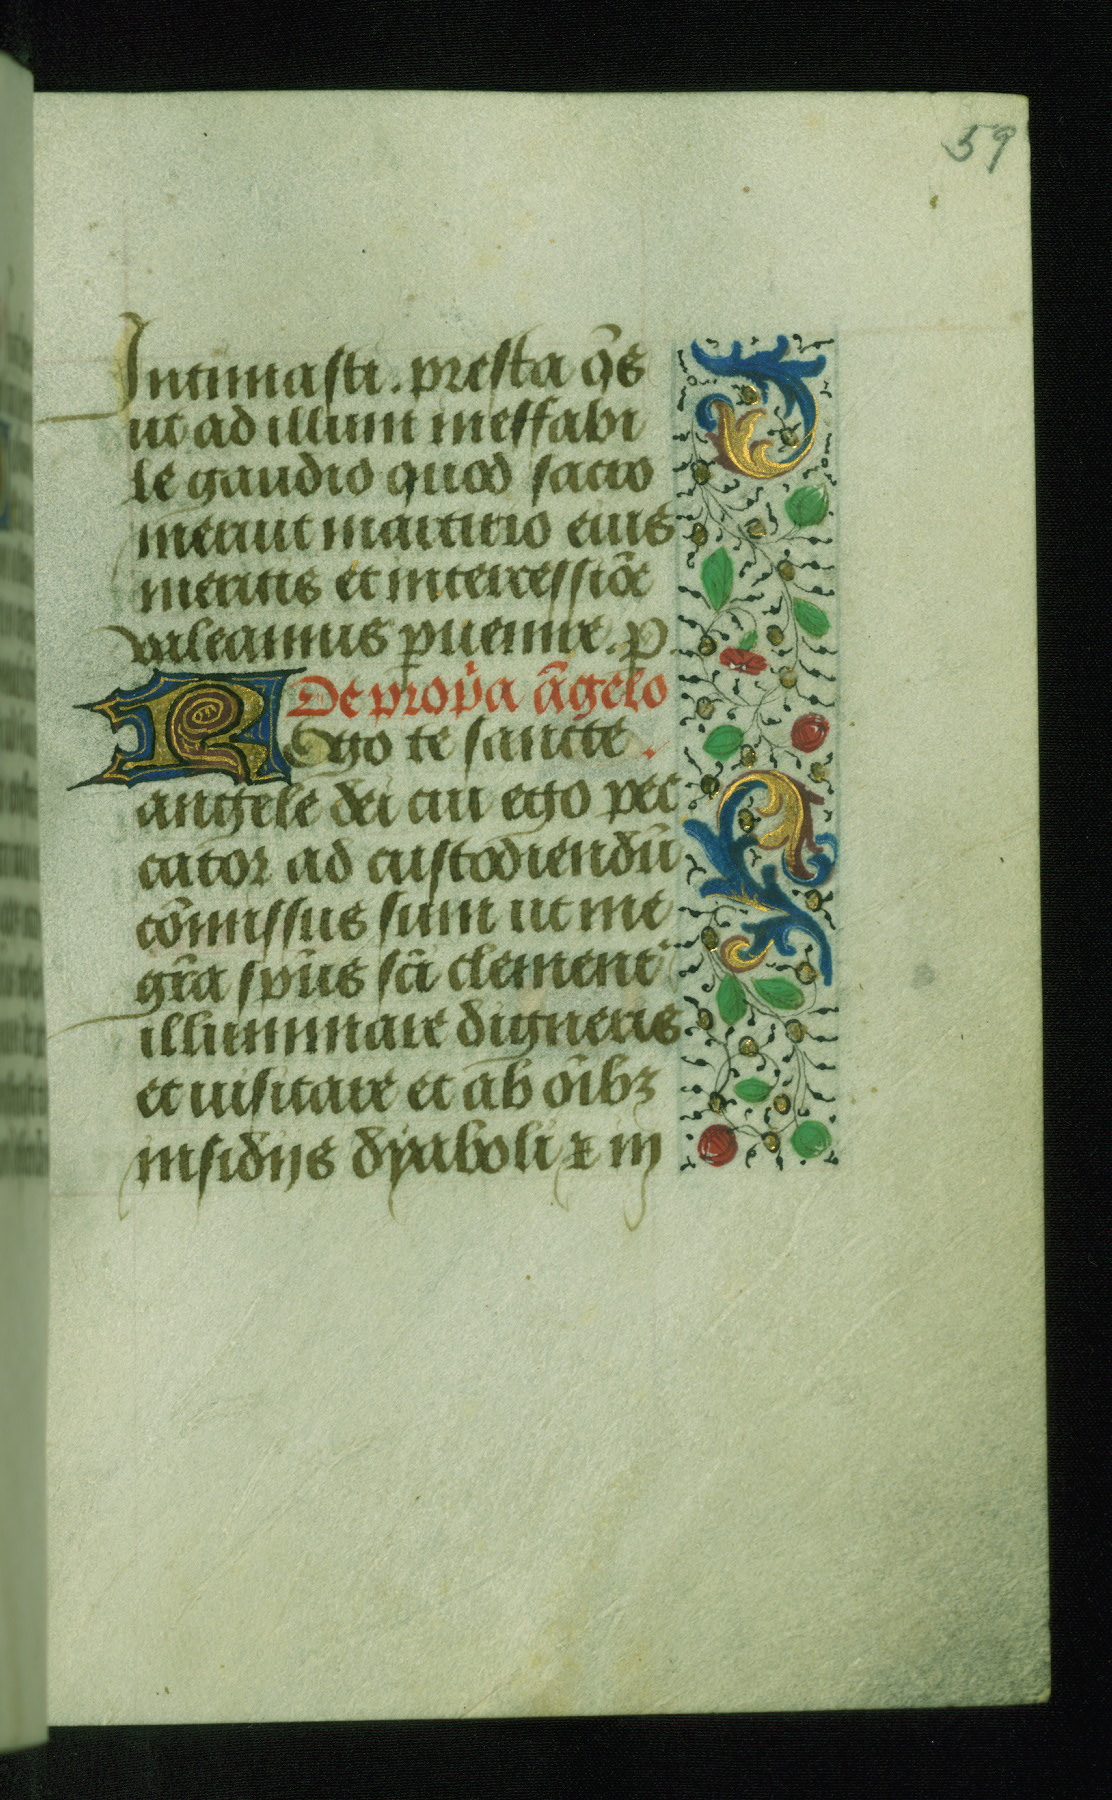 59
Intimasti. presta q̄s
ut ad illum ineffabi
le gaudio quod sacro
meruit martirio eius
meritis et intercessiōe
valeamus ꝑuenire. ꝑ.
De prop̄a āgelo
Rogo te sancte
angele dei cui ego pec
cator ad custodiendū
cōmissus sum ut me
gr̄a sp̄us sc̄i clement̄
illuminare digneris
et uisitare et ab oībꝫ
insidijs dyaboli ⁊ in